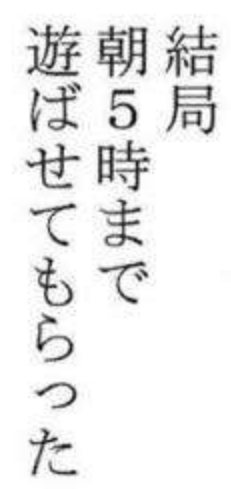 結局
朝5時まで
遊ばせてもらった